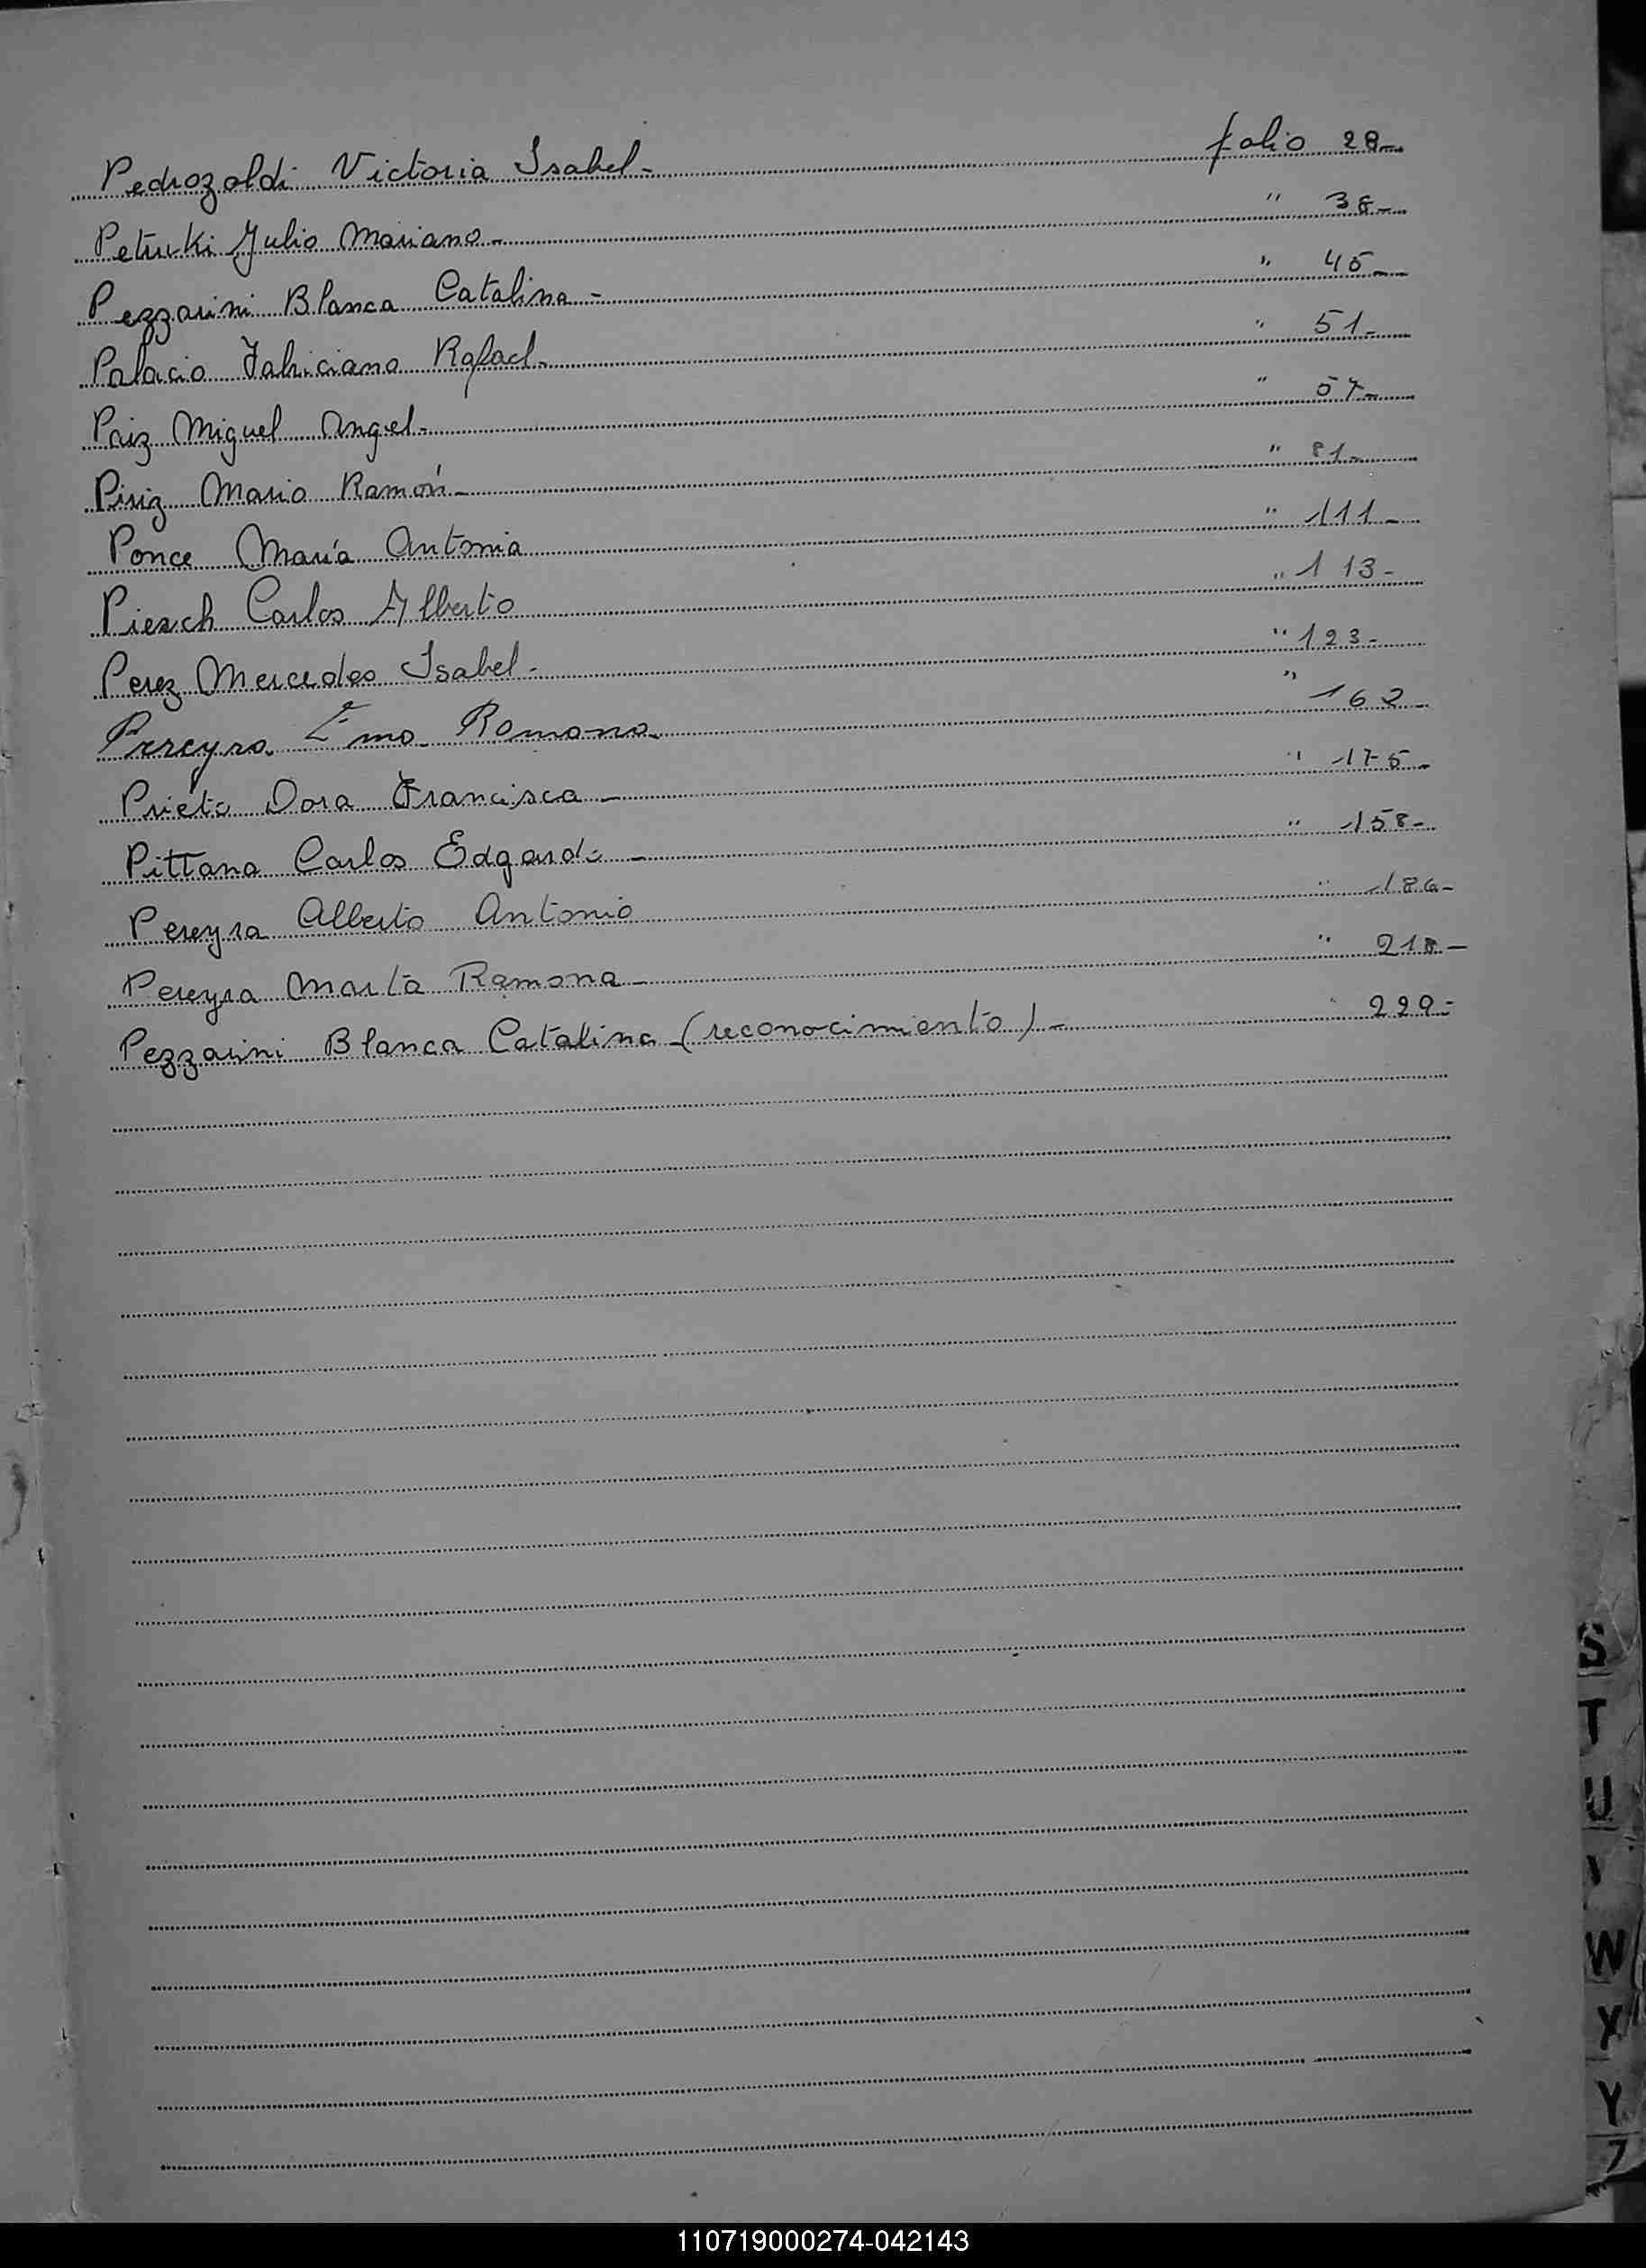 Pedrozoldi Victoria Isabel- folio 28-
Petruki Julio Mariano- " 38-
Pezzarini Blanca Catalina- " 45-
Palacio Fabriciano Rafael- " 51-
Paiz Miguel Angel- " 57-
Piriz Mario Ramón- " 81-
Ponce María Antonia " 111-
Piesch Carlos Alberto " 113-
Perez Mercedes Isabel- " 123-
Pereyra Ema Romana " 162-
Prieto Dora Francisca- " 175-
Pittana Carlos Edgardo- " 158-
Pereyra Alberto Antonio " 186-
Pereyra Marta Ramona- " 218-
Pezzarini Blanca Catalina (reconocimiento)- " 229-
S
T
U
W
X
Y
Z
110719000274-042143